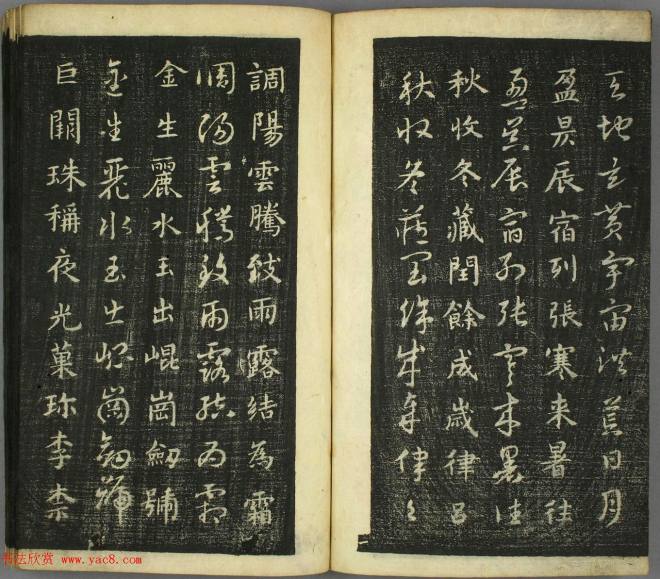 天地玄黃宇宙洪荒日月
盈昃辰宿列張寒来暑往
盈昃辰宿列張寒来暑往
秋收冬藏閏餘成歲律呂
秋收冬藏閏餘成歲律呂
調陽雲騰致雨露結為霜
調陽雲騰致雨露結為霜
金生麗水玉出崐崗劒號
金生麗水玉出崐崗劒號
巨闕珠稱夜光菓珍李柰
书法欣赏 www.yac8.com